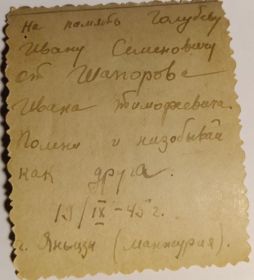 На память Голубеву
Ивану Семеновичу
от Шапорова
Ивана Тимофеевича.
Помни и незабывай
как друга.
19/IX-45 г.
г. Яньцзи (Манжурия).